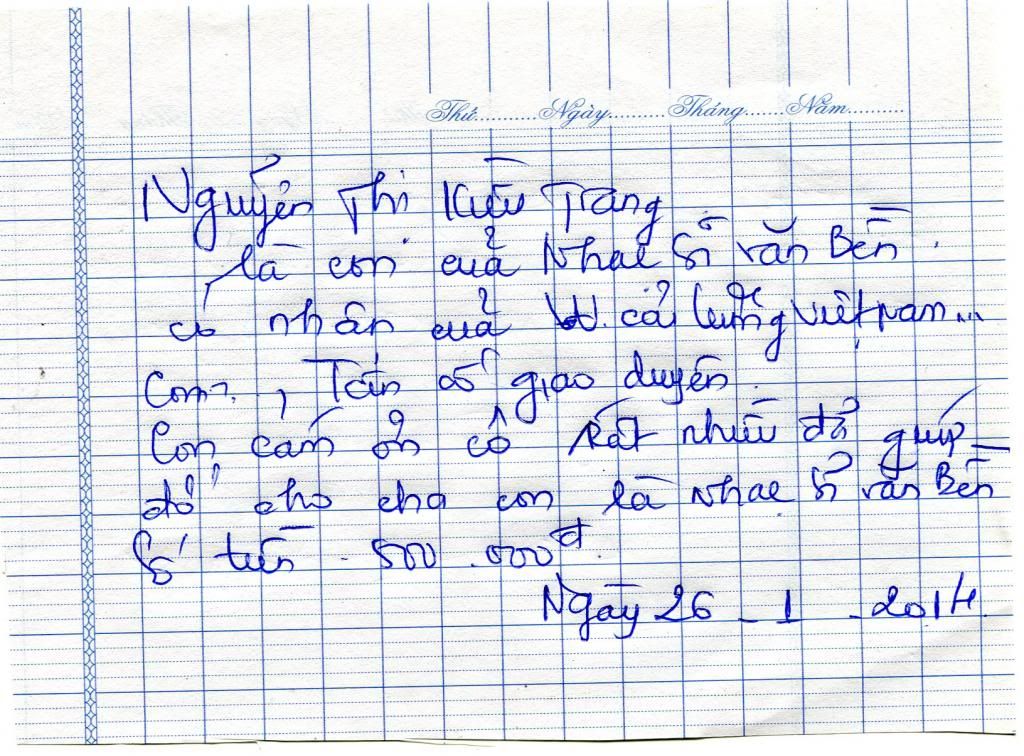 Thứ..........Ngày..........Tháng.......Năm..........
Nguyễn Thi Kiều Trang
là con của Nhac Sĩ văn Bền.
có nhân của cải lưỡng việt nam...
Com , Tấn cô giao duyên.
Con cám ởn cô Rất nhiều đả giúp
đở cho cha con là Nhac sĩ văn Bền
Số tiền 500.000đ.
Ngày 26 - 1 - 2014